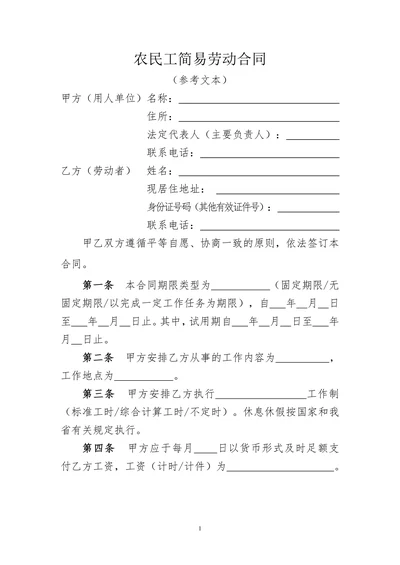 农民工简易劳动合同
（参考文本）
甲方（用人单位）名称：____________________
住所：____________________
法定代表人（主要负责人）：________
联系电话：____________________
乙方（劳动者） 姓名：____________________
现居住地址：__________________
身份证号码（其他有效证件号）：________
联系电话：____________________
甲乙双方遵循平等自愿、协商一致的原则，依法签订本
合同。
第一条 本合同期限类型为__________（固定期限/无
固定期限/以完成一定工作任务为期限），自___年__月__日
至___年__月__日止。其中，试用期自___年__月__日至___年
__月__日止。
第二条 甲方安排乙方从事的工作内容为_________，
工作地点为__________。
第三条 甲方安排乙方执行_______________工作制
（标准工时/综合计算工时/不定时）。休息休假按国家和我
省有关规定执行。
第四条 甲方应于每月____日以货币形式及时足额支
付乙方工资，工资（计时/计件）为__________________。
1